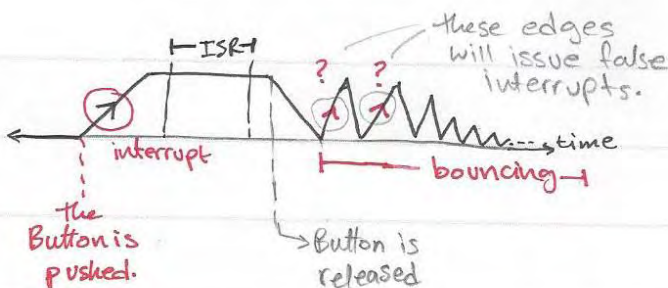 ISR
these edges
will issue false
interrupts.
?
?
interrupt
time
bouncing
the
Button is
pushed.
Button is
released